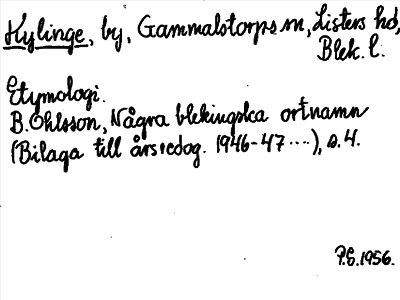 Kylinge, by, Gammalstorps sn, Listers hd,
Blek. l.
Etymologi.
B. Ohlsson, Några blekingska ortnamn
(Bilaga till årsredog. 1946-47 ....), s. 4.
P.E. 1956.